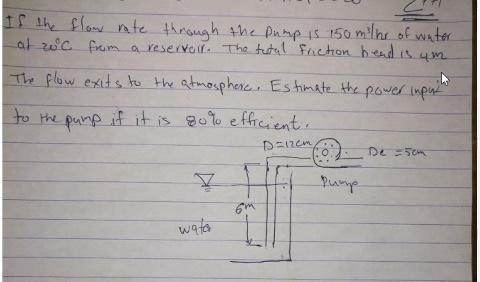 If the flow rate through the pump is 150 m³/hr of water
at 20°C from a reservoir. The total friction head is 4m
The flow exits to the atmosphere. Estimate the power input
to the pump if it is 80% efficient.
D=12cm
De = 5cm
Pump
6m
water